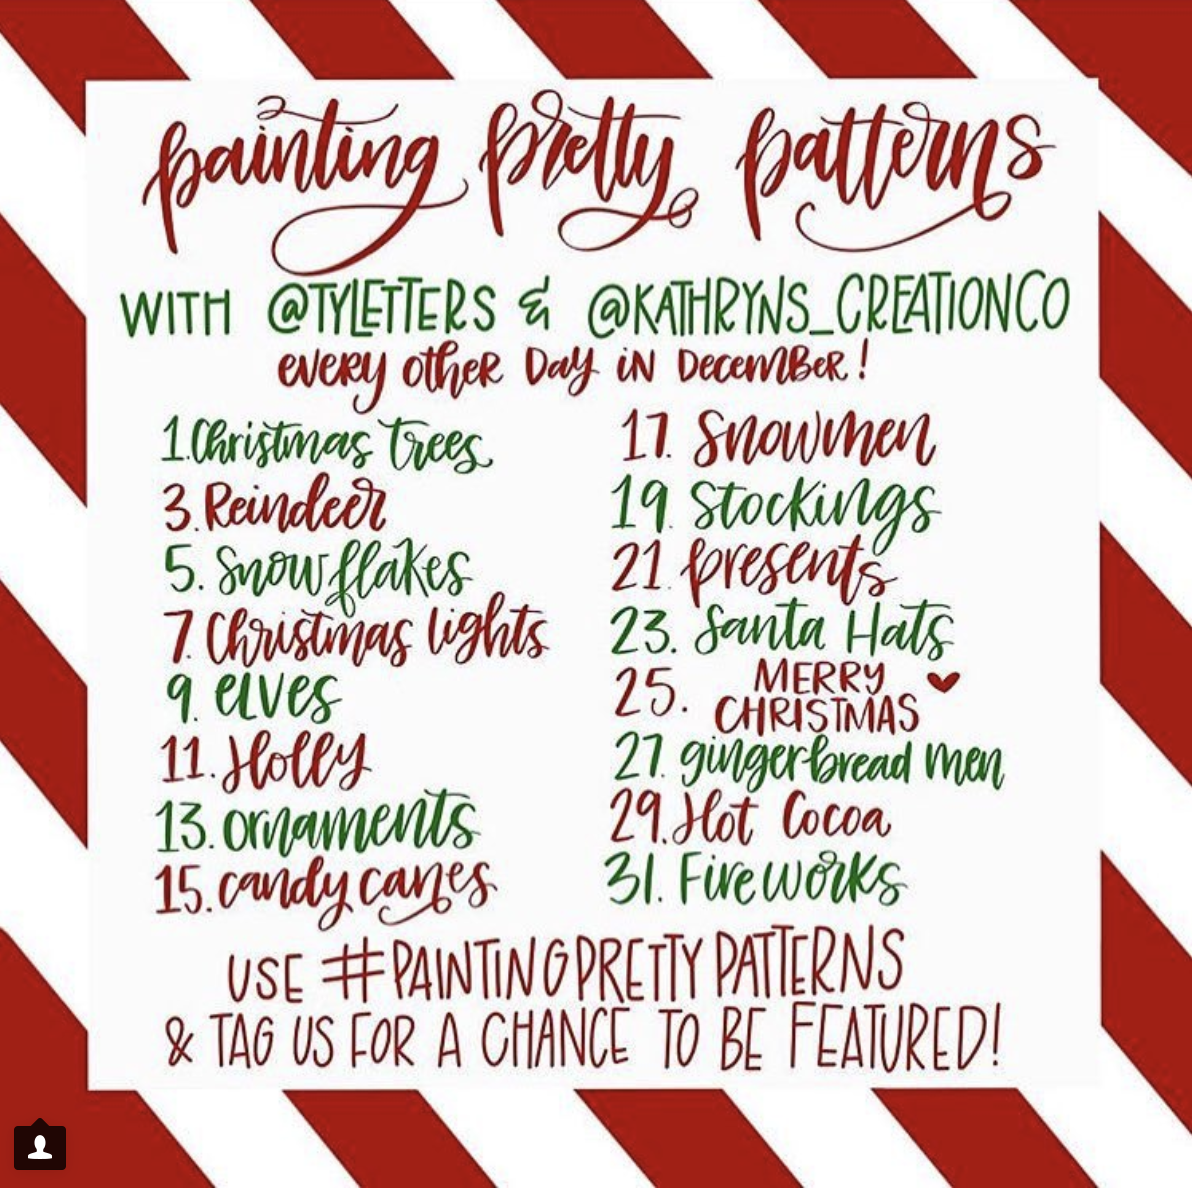 painting pretty patterns
WITH @TYLETTERS & @KATHRYNS_CREATIONCO
every other Day in December!
1. Christmas trees
3. Reindeer
5. Snowflakes
7. Christmas lights
9. elves
11. Holly
13. ornaments
15. candy canes
17. Snowmen
19. Stockings
21. presents
23. Santa Hats
25. MERRY
CHRISTMAS
27. gingerbread men
29. Hot Cocoa
31. Fireworks
USE #PAINTINGPRETTYPATTERNS
& TAG US FOR A CHANCE TO BE FEATURED!